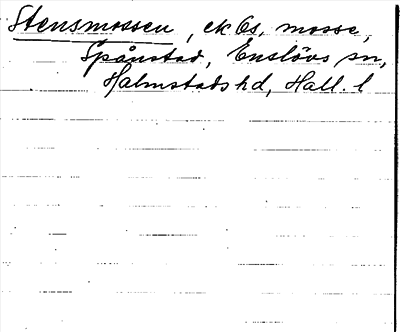 Stensmossen, ek bs, mosse,
Spånstad, Enslövs sn,
Halmstads hd, Hall. l